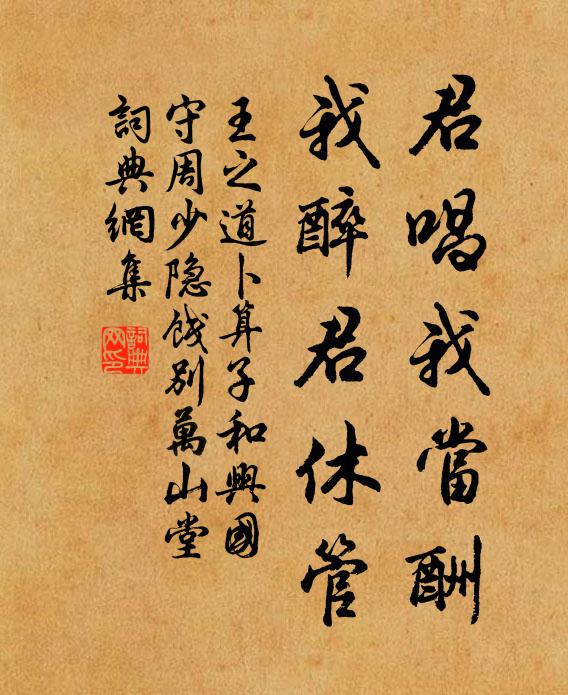 君唱我當酬
我醉君休管
王之道卜算子和興國
守周少隐餞別萬山堂
詞典網集
詞典网印